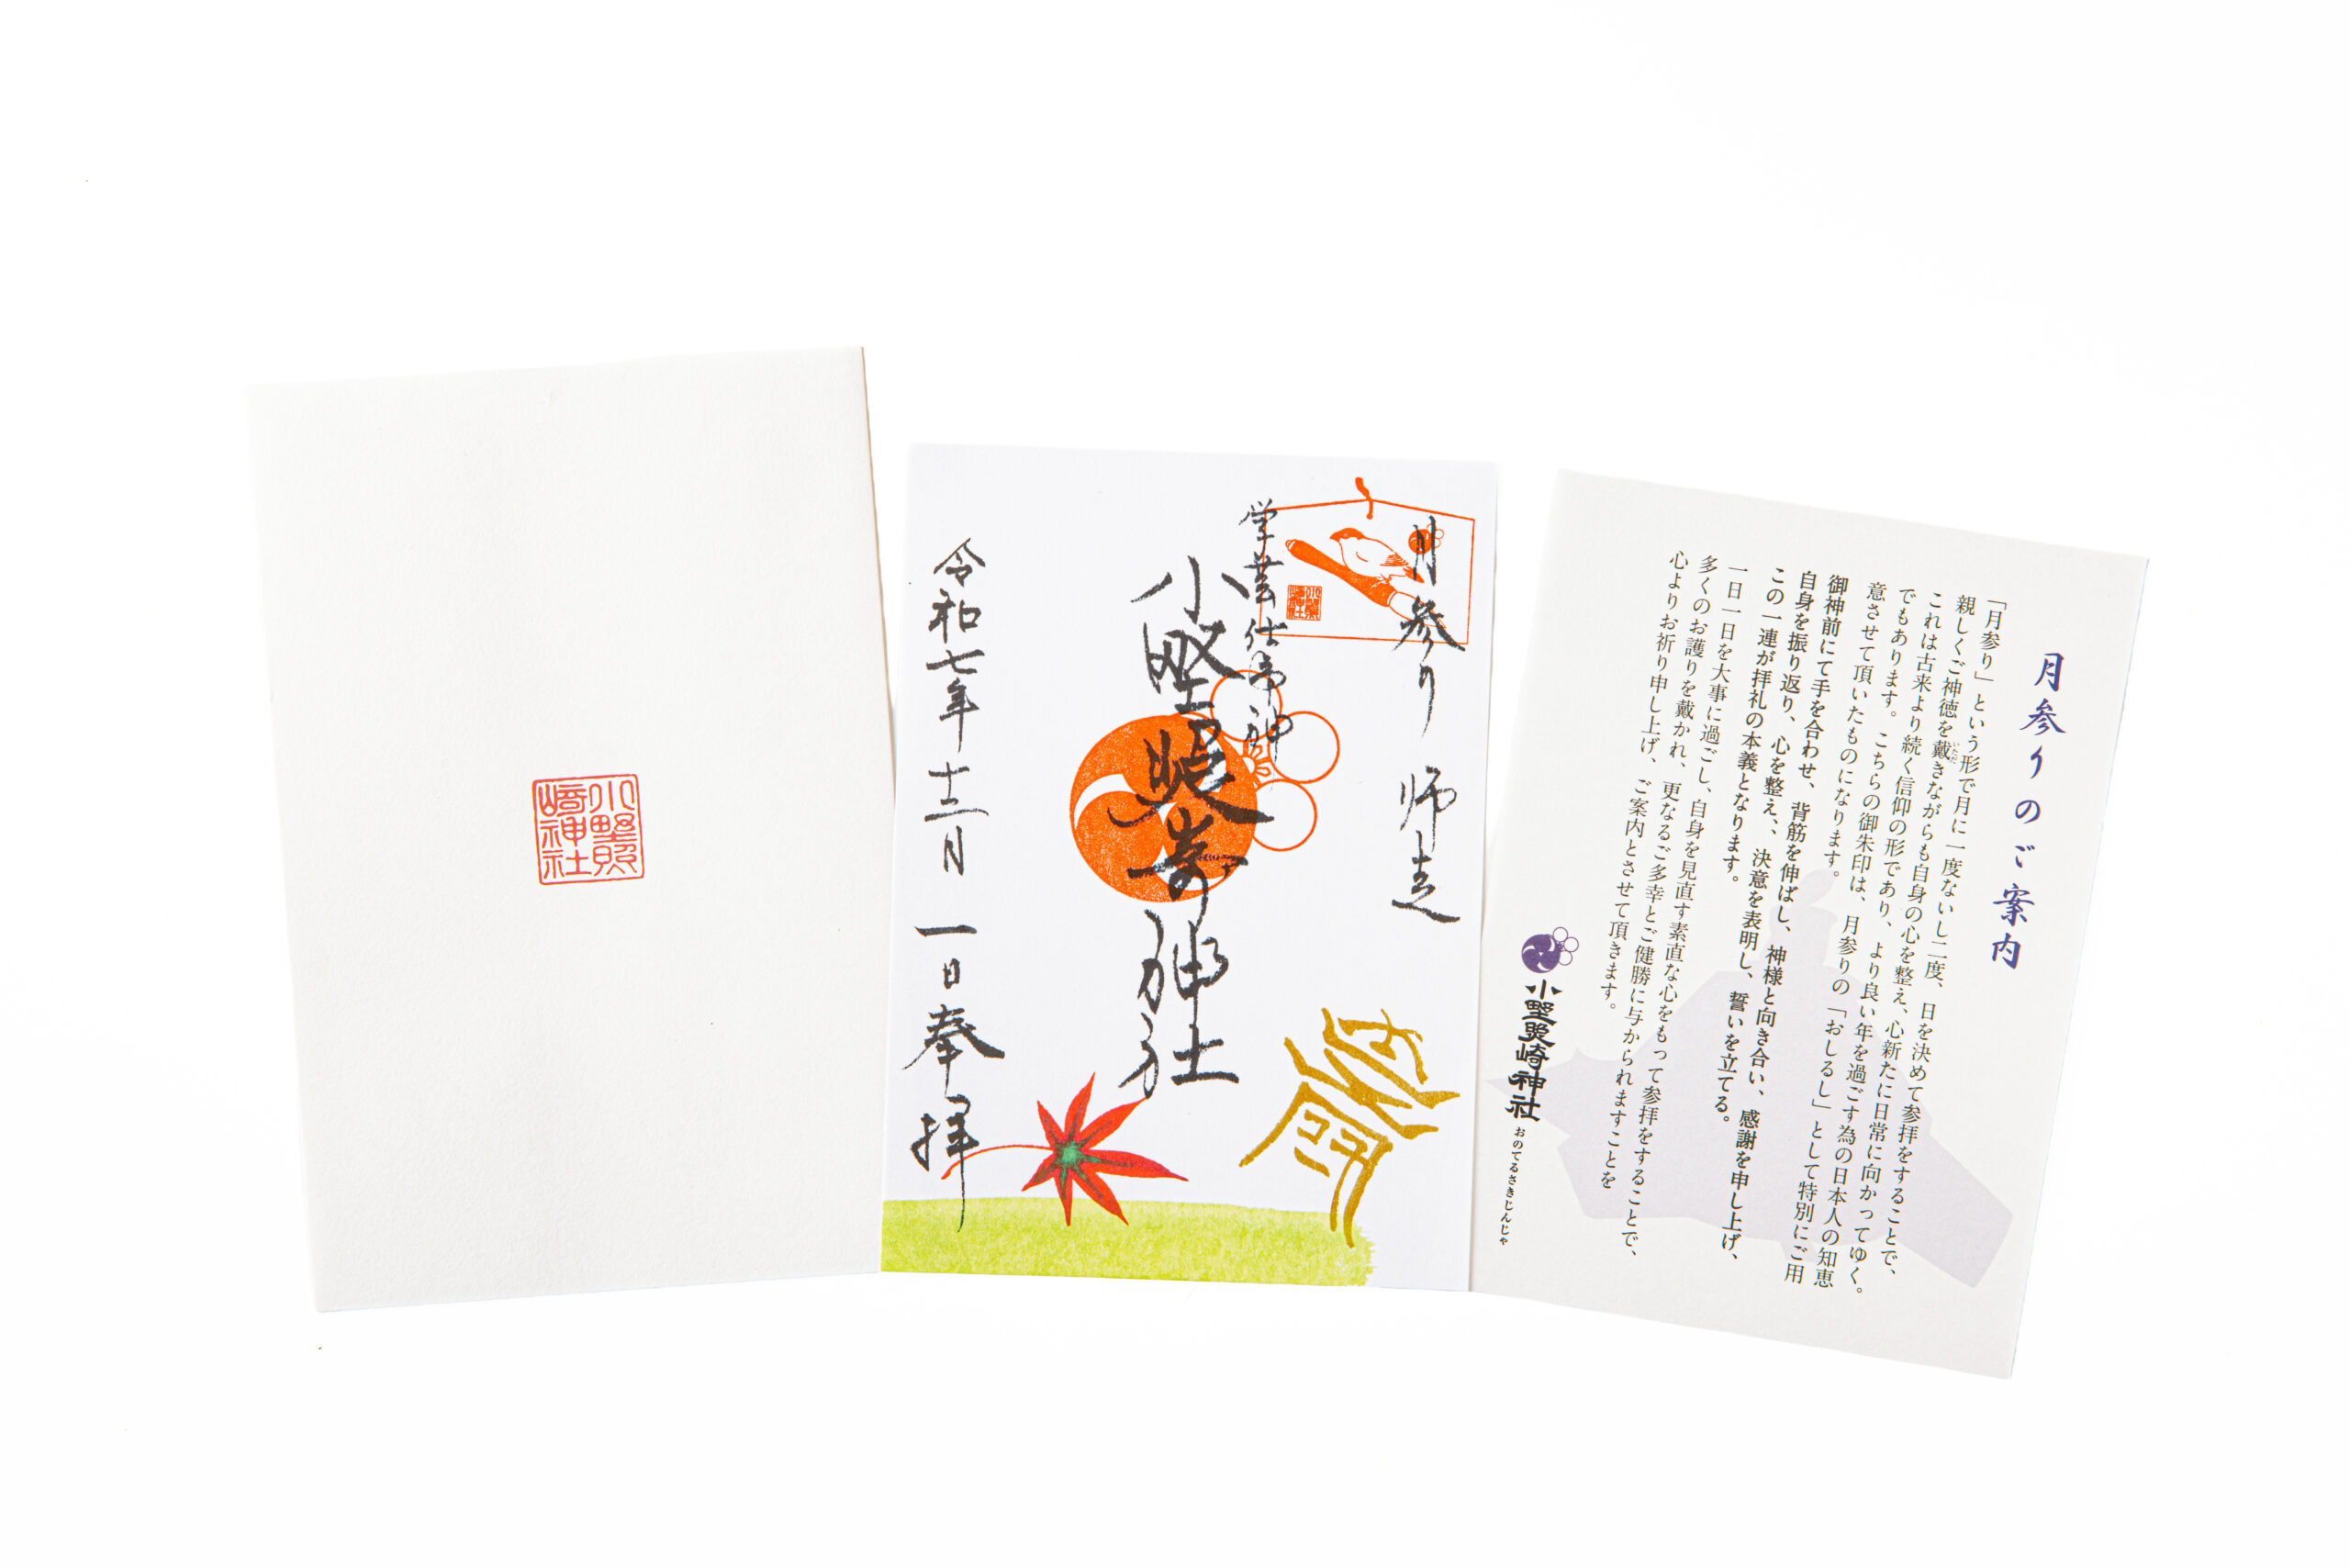 小野照
崎神社
月参り 師走
学芸仕事神
小野照崎神社
令和七年 十二月 一日奉拝
月参りのご案内
「月参り」という形で月に一度ないし二度、日を決めて参拝をすることで、
親しくご神徳を戴きながらも自身の心を整え、心新たに日常に向かってゆく。
いただ
これは古来より続く信仰の形であり、より良い年を過ごす為の日本人の知恵
でもあります。こちらの御朱印は、月参りの「おしるし」として特別にご用
意させて頂いたものになります。
御神前にて手を合わせ、背筋を伸ばし、神様と向き合い、感謝を申し上げ、
自身を振り返り、心を整え、、決意を表明し、誓いを立てる。
この一連が拝礼の本義となります。
一日一日を大事に過ごし、自身を見直す素直な心をもって参拝をすることで、
多くのお護りを戴かれ、更なるご多幸とご健勝に与かられますことを
心よりお祈り申し上げ、ご案内とさせて頂きます。
小野照崎神社 おのてるさきじんじゃ